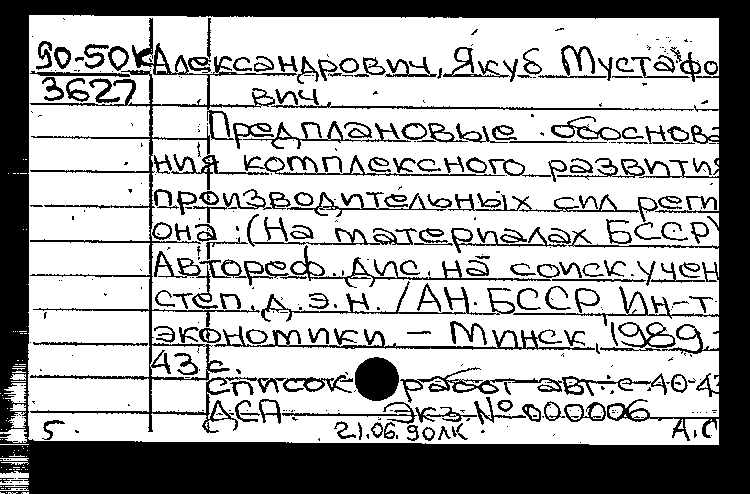 90-50К Александрович, Якуб Мустафо
3627 вич.
Предплановые обоснова
ния комплексного развития
производительных сил реги
она : (На материалах БССР)
Автореф. дис. на соиск. учен
степ. д. э. н. / АН БССР, Ин-т
экономики. – Минск, 1989. –
43 с.
Список работ авт.: с 40-43
ДСП. Экз. № 000006
5. 21.06.90ЛК А.С